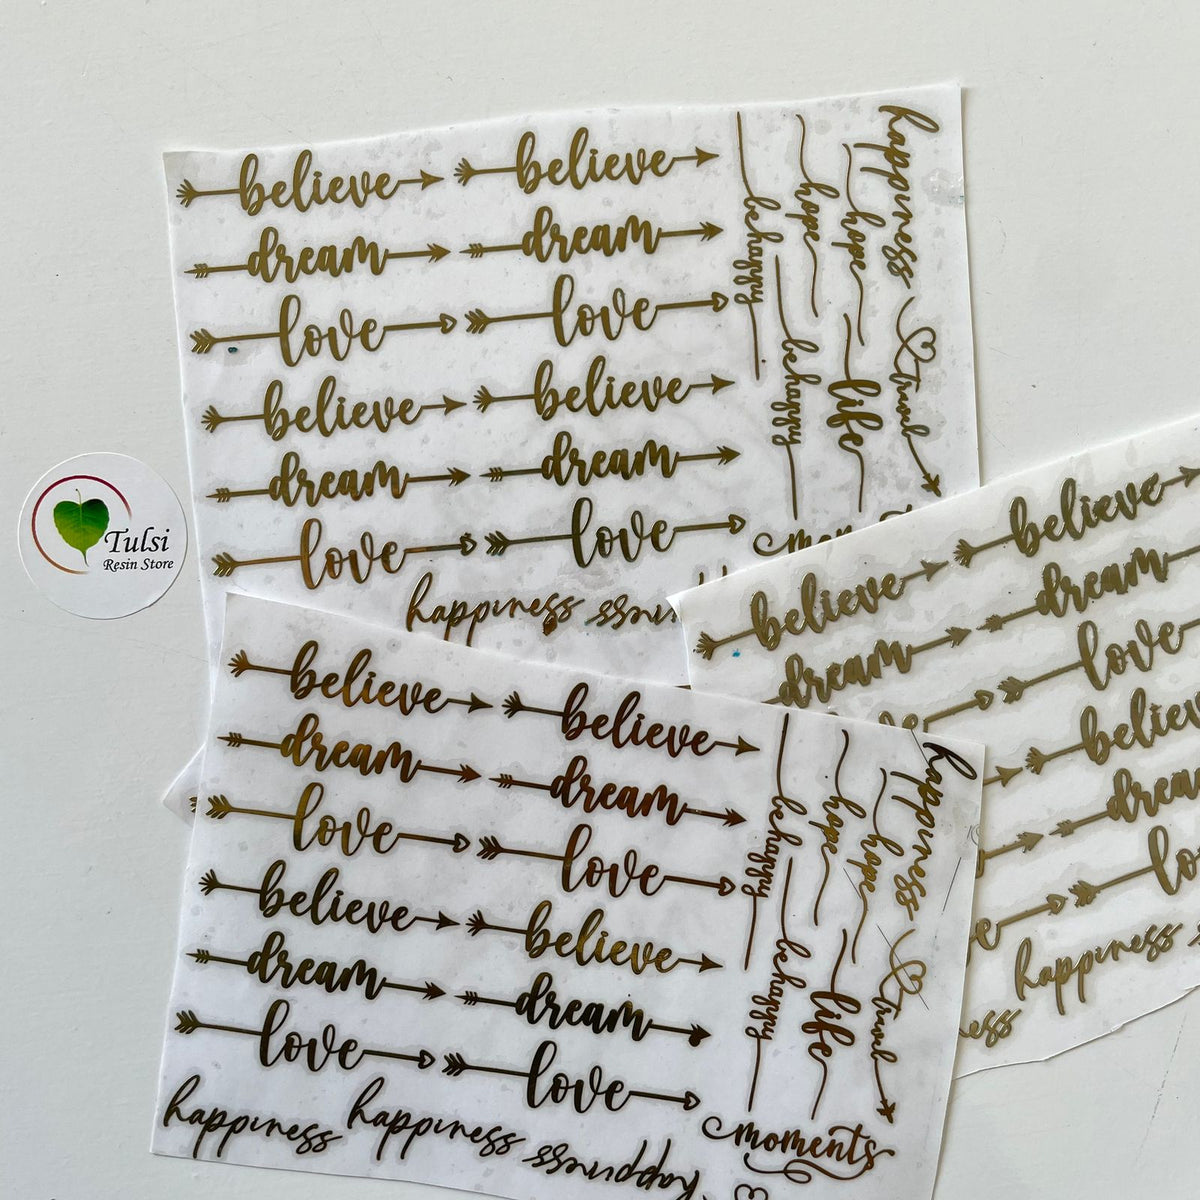 believe believe
dream dream
love love
believe believe
dream dream
love love
happiness happiness
be happy
be happy
hope
hope
life
happiness
travel
Tulsi
Resin Store
believe believe
dream dream
love love
believe believe
dream dream
love love
happiness happiness happiness
be happy
be happy
hope
hope
life
happiness
travel
moments
believe believe
dream dream
love
believe
dream
happiness